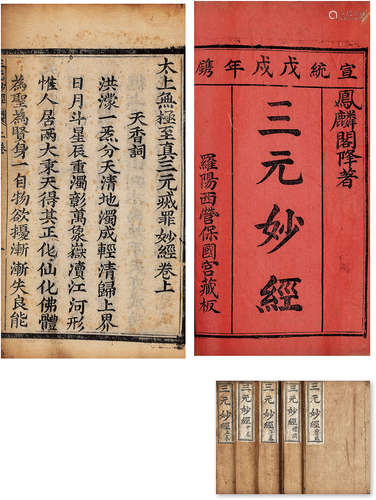 宣統戊戌年鐫
鳳麟閣降著
三元妙經
羅陽西營保國宮藏板
太上無極至真三元滅罪妙經卷上
天香詞
洪濛一炁分天清地濁成輕清歸上界
日月斗星辰重濁彰萬象嶽瀆江河形
惟人居兩大秉天得其正化仙化佛體
為聖為賢身一自物欲擾漸漸失良能
三元妙經
三元妙經
三元妙經
三元妙經
三元妙經